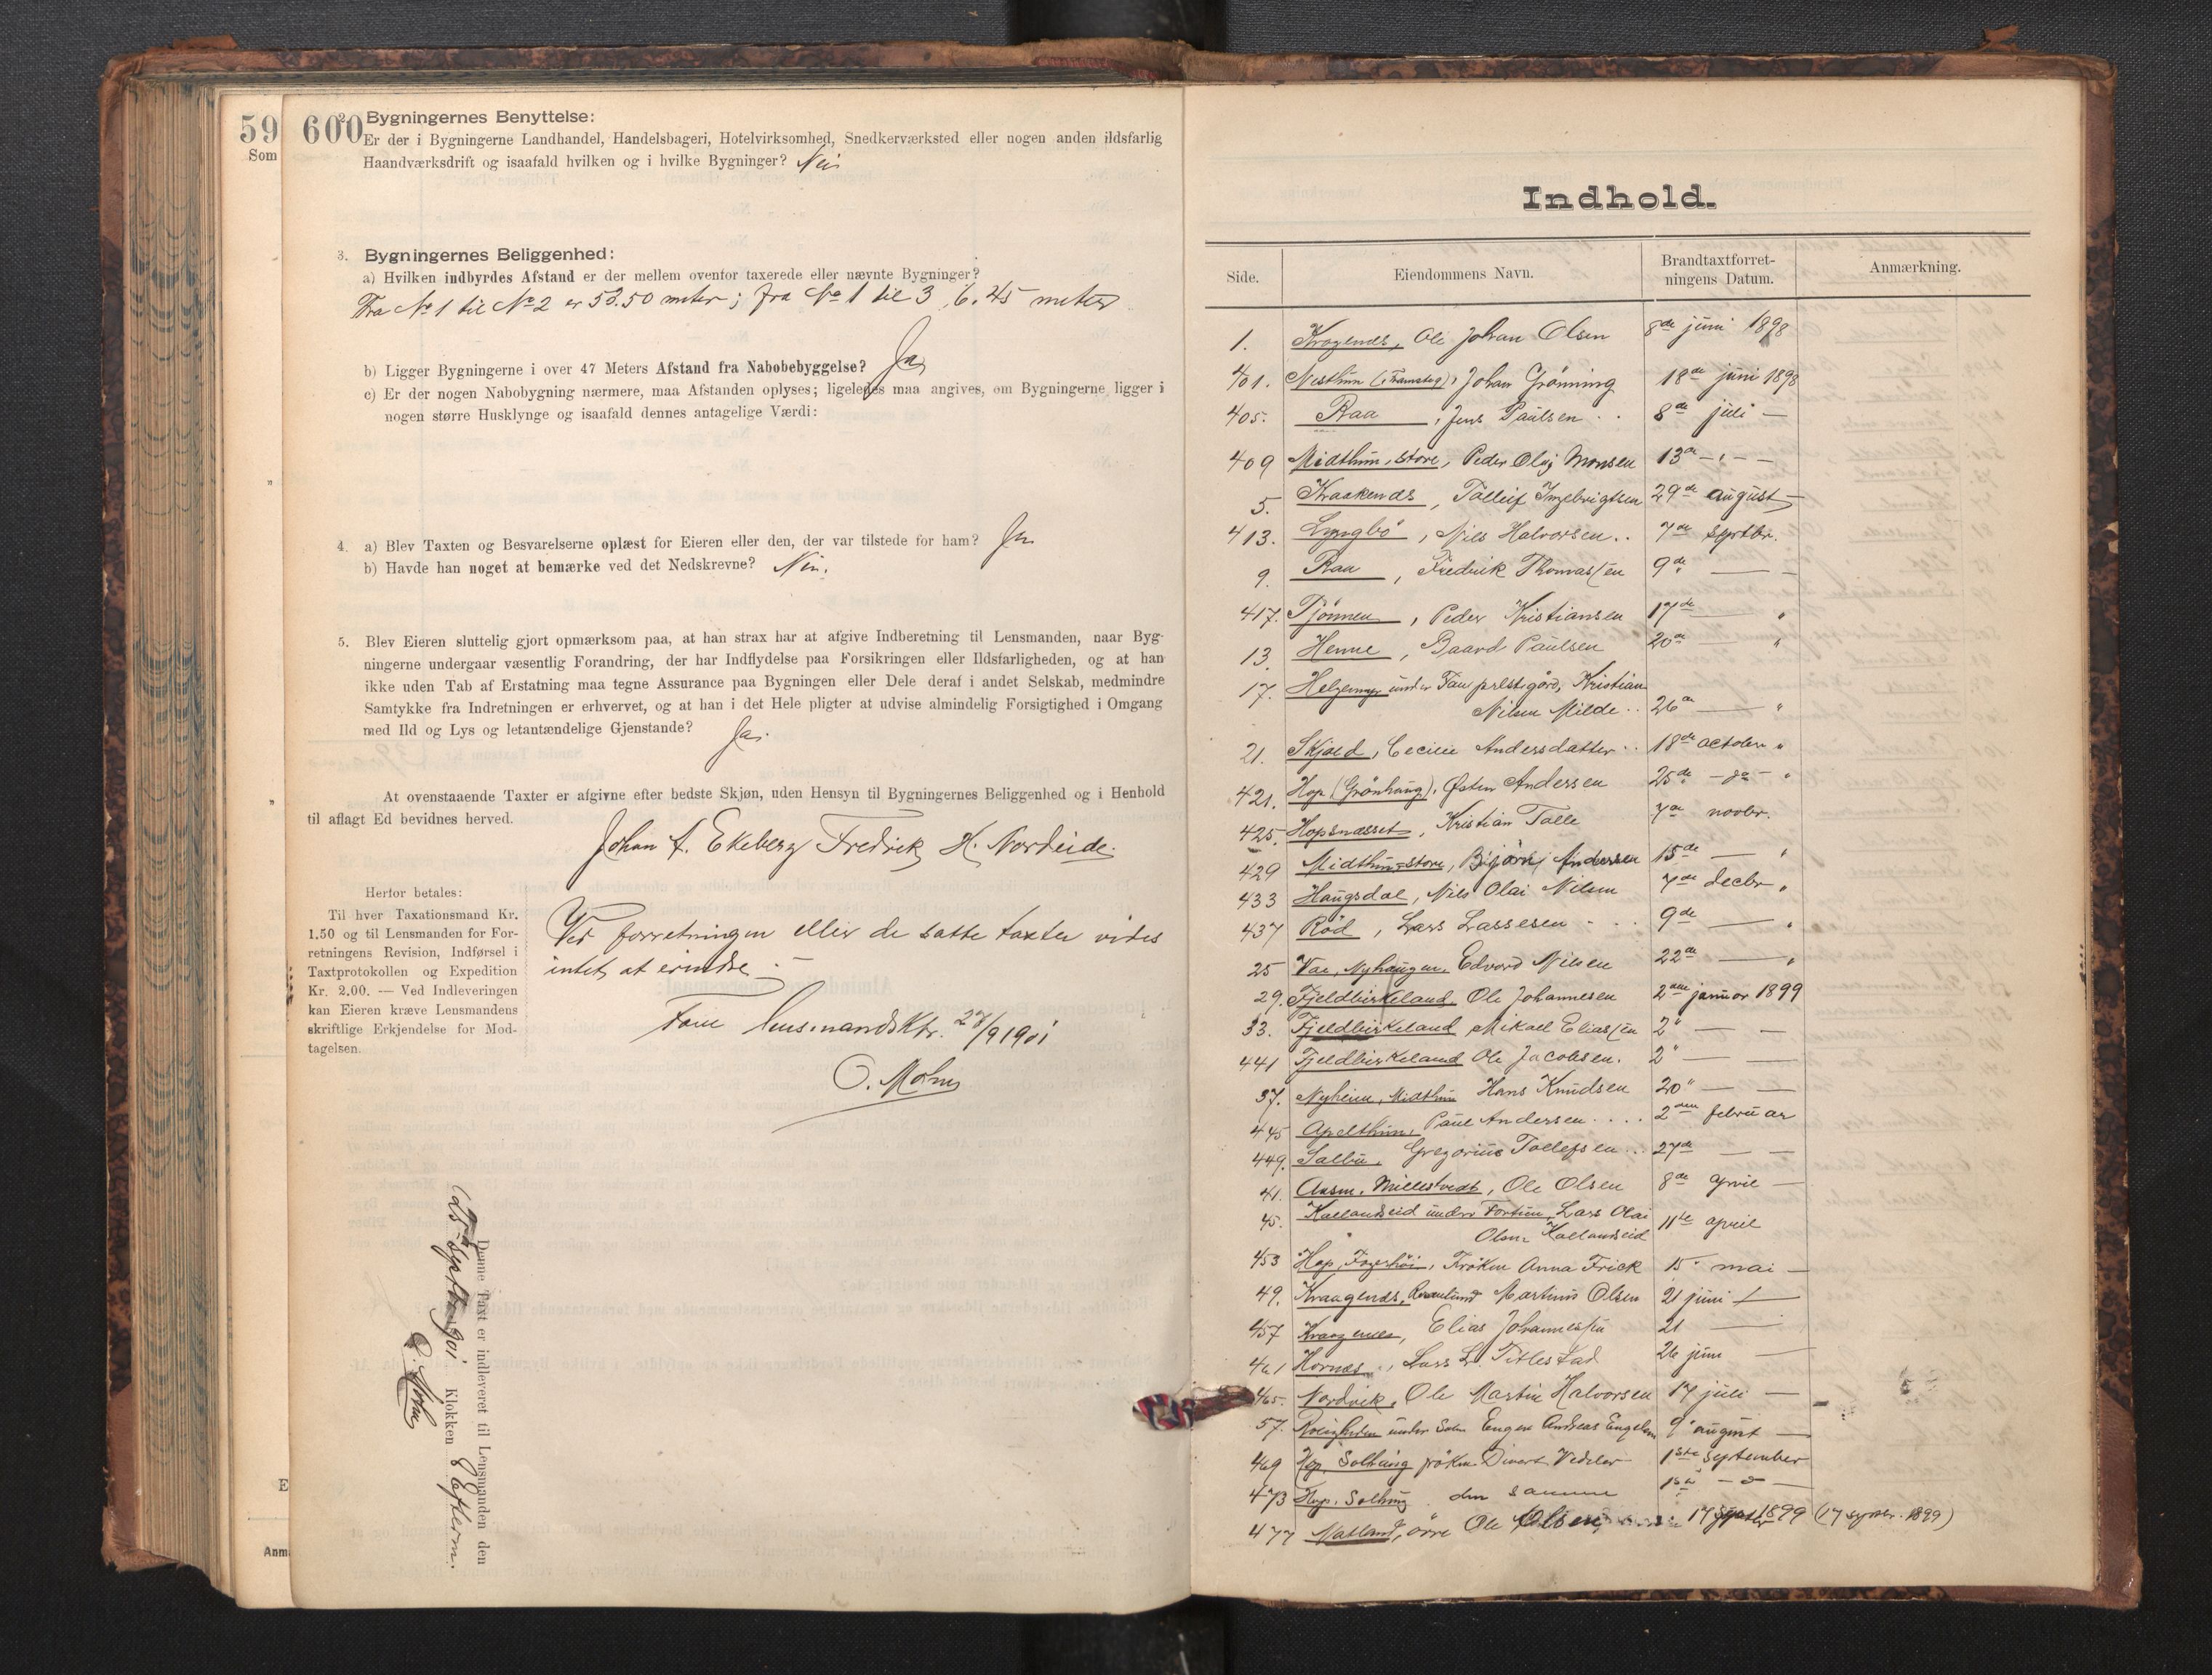 59
Som
"
"
E
Anm
600
2. Bygningernes Benyttelse:
Er der i Bygningerne Landhandel, Handelsbageri, Hotelvirksomhed, Snedkerværksted eller nogen anden ildsfarlig
Haandværksdrift og isaafald hvilken og i hvilke Bygninger? Nei
3. Bygningernes Beliggenhed:
a) Hvilken indbyrdes Afstand er der mellem ovenfor taxerede eller nævnte Bygninger?
Fra No 1 til No 2 er 53.50 meter; fra No 1 til 3, 6.45 meter
b) Ligger Bygningerne i over 47 Meters Afstand fra Nabobebyggelse? Ja
c) Er der nogen Nabobygning nærmere, maa Afstanden oplyses; ligeledes maa angives, om Bygningerne ligger i
nogen større Husklynge og isaafald dennes antagelige Værdi:
4. a) Blev Taxten og Besvarelserne oplæst for Eieren eller den, der var tilstede for ham? Ja
b) Havde han noget at bemærke ved det Nedskrevne? Nei.
5. Blev Eieren sluttelig gjort opmærksom paa, at han strax har at afgive Indberetning til Lensmanden, naar Byg-
ningerne undergaar væsentlig Forandring, der har Indflydelse paa Forsikringen eller Ildsfarligheden, og at han
ikke uden Tab af Erstatning maa tegne Assurance paa Bygningen eller Dele deraf i andet Selskab, medmindre
Samtykke fra Indretningen er erhvervet, og at han i det Hele pligter at udvise almindelig Forsigtighed i Omgang
med Ild og Lys og letantændelige Gjenstande? Ja.
At ovenstaaende Taxter er afgivne efter bedste Skjøn, uden Hensyn til Bygningernes Beliggenhed og i Henhold
til aflagt Ed bevidnes herved.
Johan A. Ekeberg Fredrik H. Nordeide.
Herfor betales:
Til hver Taxationsmand Kr.
1.50 og til Lensmanden for For-
retningens Revision, Indførsel i
Taxtprotokollen og Expedition
Kr. 2.00. — Ved Indleveringen
kan Eieren kræve Lensmandens
skriftlige Erkjendelse for Mod-
tagelsen.
Ved forretningen eller de satte taxter vides
intet at erindre. —
Fane lensmandsktr. 27/9 1901
O. Mohn
Denne Taxt er indleveret til Lensmanden den
25 septbr 901 Klokken 8 Efterm.
O. Mohn
Indhold.
Side. Eiendommens Navn. Brandtaxtforret-
ningens Datum. Anmærkning.
1. Kragenæs, Ole Johan Olsen 8de juni 1898
401. Nesthun (Framsteg), Johan Grønning 18de juni 1898
405. Raa, Jens Paulsen . . 8de juli —
409 Midthun, store, Peder Olaj Monsen 13de — " —
5. Kraakenæs, Tollief Ingebrigtsen 29de august —
413. Lyngbø, Nils Halvorsen . . 7de septbr.
9. Raa, Fredrik Thomassen 9de — —
417. Tjønnen, Peder Kristiansen 17de — "
13. Henne, Baard Paulsen 20de — "
17. Helgemyr under Fane prestegård, Kristian
Nilsen Milde . . 26de — "
21. Skjold, Cecilie Andersdatter . . 18de october "
421. Hop (Grønhaug), Østen Andersen 25de — do — "
425. Hopsnæsset, Kristian Tolle 7de novbr.
429 Midthun store, Bjørn Andersen 15de — "
433 Haugsdal, Nils Olai Nilsen 7de decbr "
437 Rød, Lars Lassesen . . 9de — "
25 Vae, Nyhaugen, Edvard Nilsen 22de — "
29. Fjeldbirkeland, Ole Johannesen 2den januar 1899
33. Fjeldbirkeland, Mikael Eliassen 2" — —
441 Fjeldbirkeland Ole Jacobsen. 2" — —
37. Nyheim, Midthun Hans Knudsen 20" — —
445 Apelthun, Paul Andersen . . . . 2den februar
449. Salbu, Gregorius Tollefsen . . . 27de — —
41. Aasen, Millestvedt, Ole Olsen 8de april —
45. Kallandseid under Fortun, Lars Olai
Olsen Kallandseid 11te april
453 Hop, Fagerhøi, Frøken Anna Frick 15" mai —
49. Kraagenæs, Martinus Olsen 21 juni —
457 Kraagenæs, Elias Johannessen 21 —
461 Hornæs, Lars L. Titlestad 26 juni —
465. Nordvik, Ole Martin Halvorsen 17 juli —
57. under Engen Andreas Engelsen 9" august —
469 Hop, Solhaug frøken Vedeler 1ste september
473 Hop, Solhaug den samme 1ste — " —
477 Natland, øvre Ole Olsen 17 septbr 1899 (17 septbr. 1899)